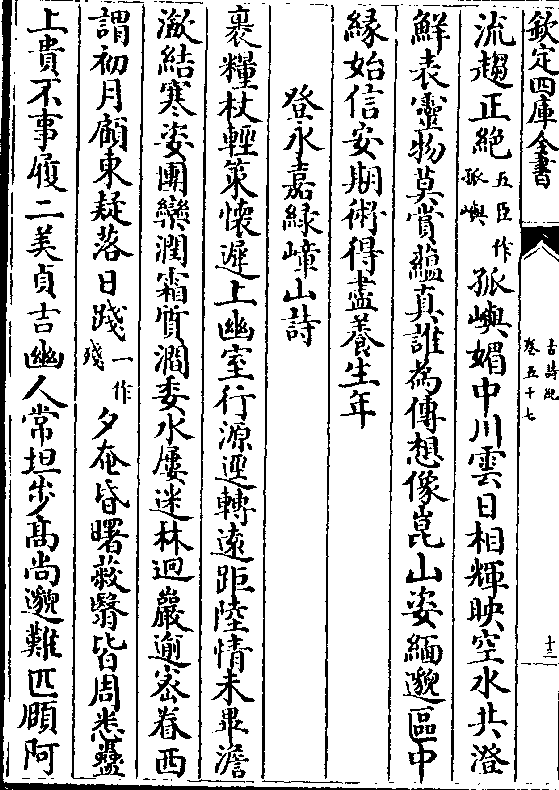 欽定四庫全書
古詩紀
卷五十七
十三
流趨正絶五臣作孤嶼孤嶼媚中川雲日相輝映空水共澄
鮮表靈物莫賞蘊真誰為傳想像崑山姿緬邈區中
緣始信安期術得盡養生年
登永嘉緑嶂山詩
裹糧杖輕策懷遲上幽室行源逕轉遠距陸情未畢澹
瀲結寒姿團欒潤霜質澗委水屢迷林迥巖逾宻眷西
謂初月顧東疑落日踐一作殘夕奄昏曙蔽翳皆周悉蠱
上貴不事履二美貞吉幽人常坦步髙尚邈難匹頥阿